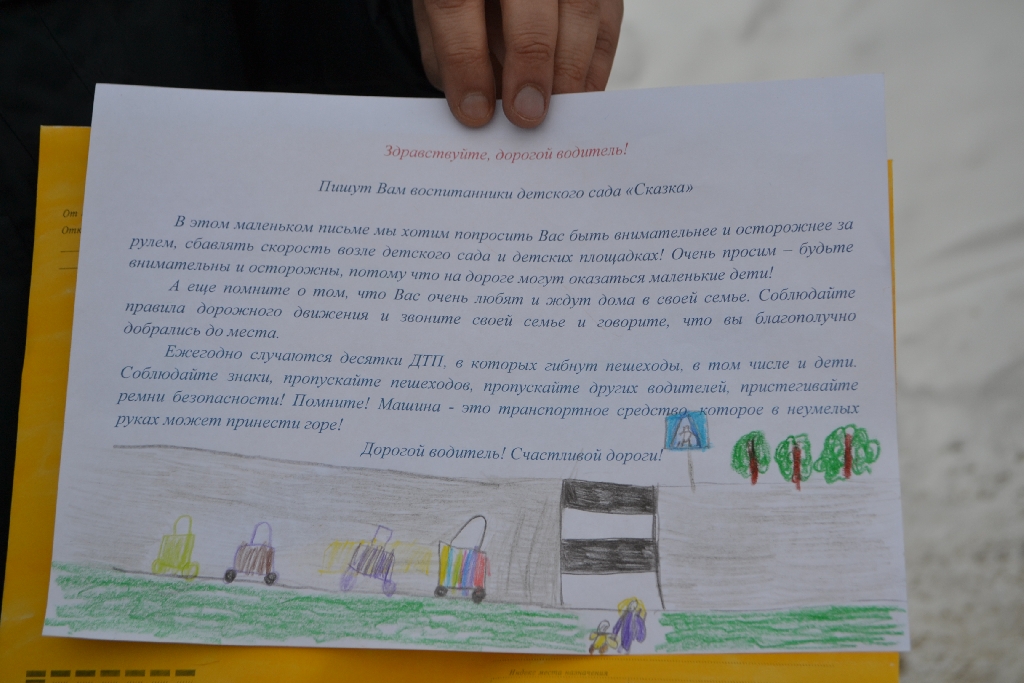 Здравствуйте, дорогой водитель!
Пишут Вам воспитанники детского сада «Сказка»
В этом маленьком письме мы хотим попросить Вас быть внимательнее и осторожнее за
рулем, сбавлять скорость возле детского сада и детских площадках! Очень просим – будьте
внимательны и осторожны, потому что на дороге могут оказаться маленькие дети!
А еще помните о том, что Вас очень любят и ждут дома в своей семье. Соблюдайте
правила дорожного движения и звоните своей семье и говорите, что вы благополучно
добрались до места.
Ежегодно случаются десятки ДТП, в которых гибнут пешеходы, в том числе и дети.
Соблюдайте знаки, пропускайте пешеходов, пропускайте других водителей, пристегивайте
ремни безопасности! Помните! Машина - это транспортное средство, которое в неумелых
руках может принести горе!
Дорогой водитель! Счастливой дороги!
От
Отк
места назначения